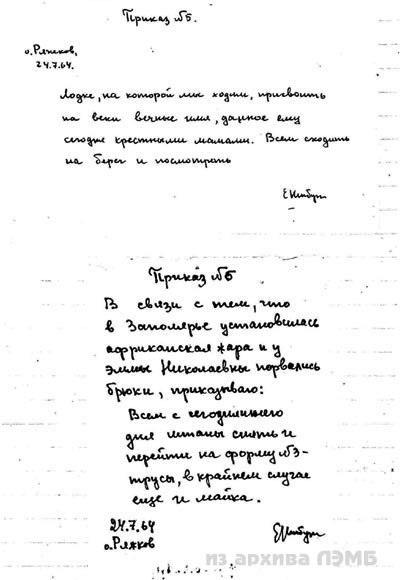 Приказ №5.
о. Ряжков,
24.7.64.
Лодке, на которой мы ходим, присвоить
на веки вечные имя, данное ему
сегодня крестными мамами. Всем сходить
на берег и посмотреть
Приказ №6
В связи с тем, что
в Заполярье установилась
африканская жара и у
Эммы Николаевны порвались
брюки, приказываю:
Всем с сегодняшнего
дня штаны снять и
перейти на форму №3-
трусы, в крайнем случае
еще и майка.
24.7.64
о. Ряжков
из архива ЛЭМБ